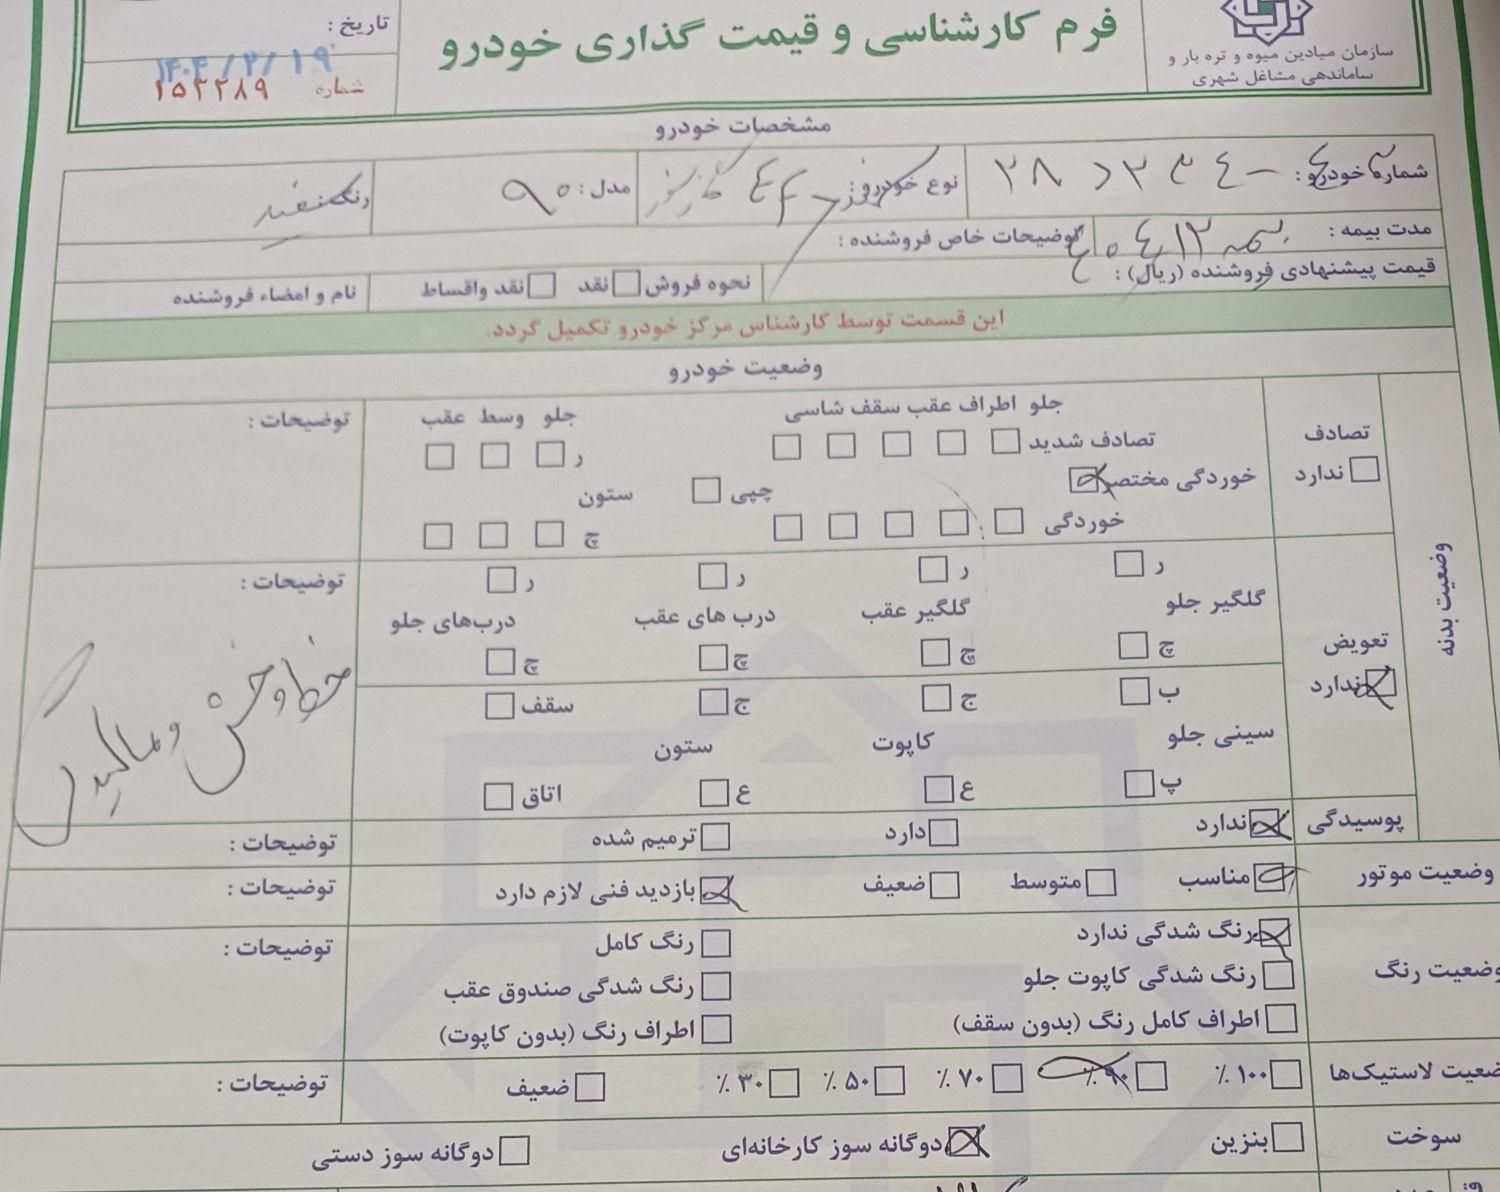 سازمان میادین میوه و تره بار و
ساماندهی مشاغل شهری
فرم کارشناسی و قیمت گذاری خودرو
تاریخ : ۱۴۰۴/۲/۱۹
شماره ۱۵۲۲۸۹
مشخصات خودرو
شماره خودرو :
نوع خودرو :
مدل : ۹۰
رنگ : سفید
مدت بیمه :
توضیحات خاص فروشنده :
قیمت پیشنهادی فروشنده (ریال) :
نحوه فروش نقد نقد واقساط
نام و امضاء فروشنده
این قسمت توسط کارشناس مرکز خودرو تکمیل گردد.
وضعیت خودرو
وضعیت بدنه
تصادف
ندارد
جلو اطراف عقب سقف شاسی
تصادف شدید
خوردگی مختصر
چپی
خوردگی
جلو وسط عقب
ر
ستون
چ
توضیحات :
تعویض
ندارد
ر ر ر ر
گلگیر جلو گلگیر عقب درب های عقب درب‌های جلو
چ چ چ چ
ب ج ج سقف
سینی جلو کاپوت ستون
پ ع ع اتاق
توضیحات :
خط و خش و مالیدگی
پوسیدگی ندارد دارد ترمیم شده توضیحات :
وضعیت موتور مناسب متوسط ضعیف بازدید فنی لازم دارد توضیحات :
وضعیت رنگ
رنگ شدگی ندارد رنگ کامل توضیحات :
رنگ شدگی کاپوت جلو رنگ شدگی صندوق عقب
اطراف کامل رنگ (بدون سقف) اطراف رنگ (بدون کاپوت)
ضعیت لاستیک‌ها ۱۰۰٪ ۹۰٪ ۷۰٪ ۵۰٪ ۳۰٪ ضعیف توضیحات :
سوخت بنزین دوگانه سوز کارخانه‌ای دوگانه سوز دستی